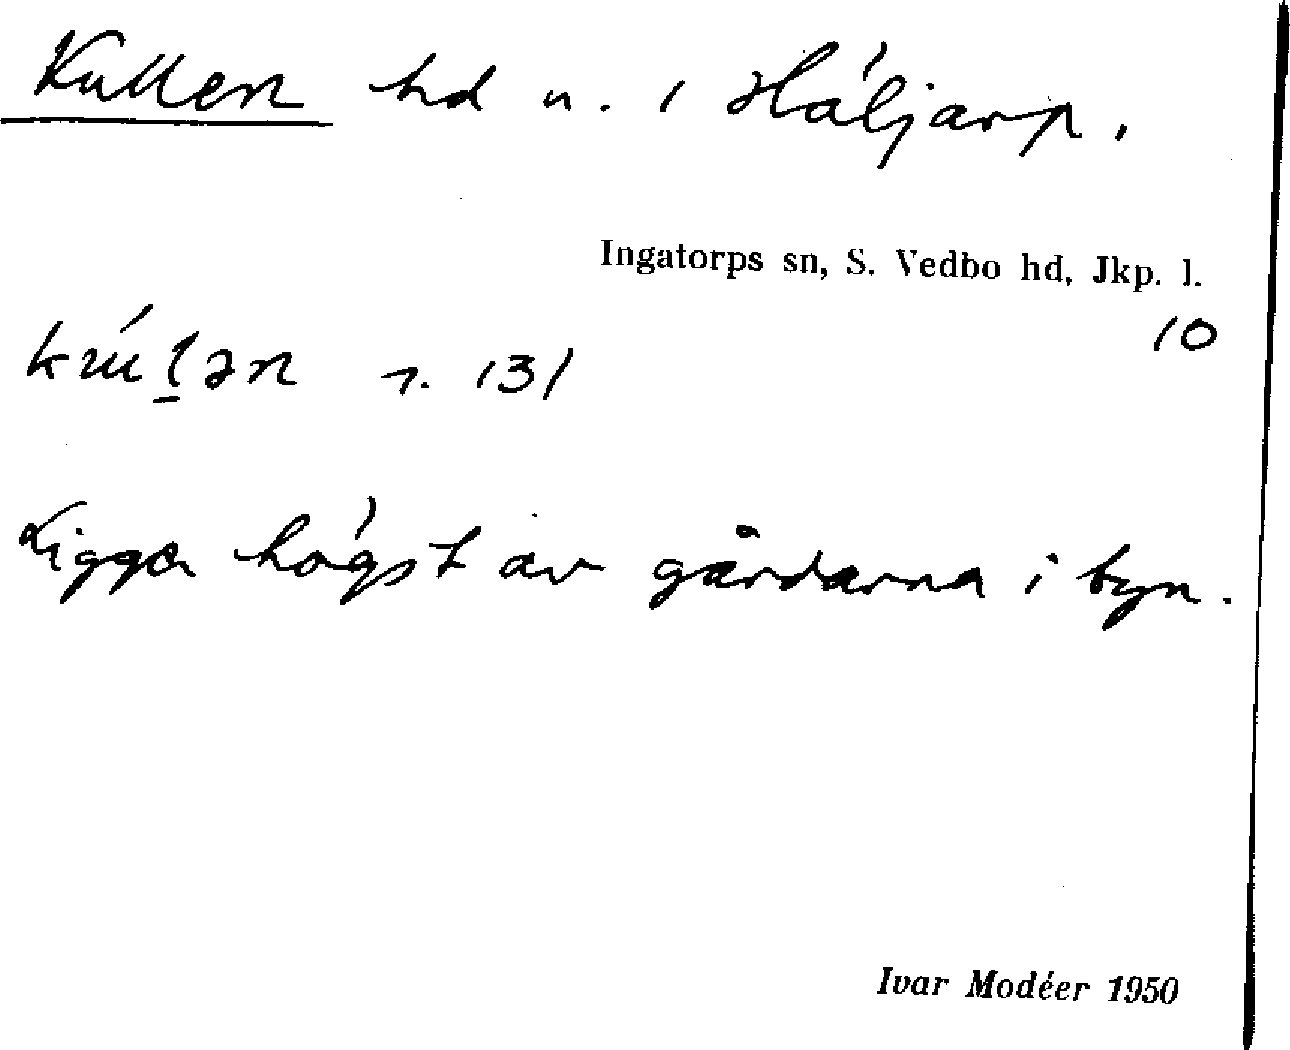 Kullen hd n. i Håljarp.
Ingatorps sn, S. Vedbo hd, Jkp. l.
10
r. 131
Ligger högst av gårdarna i byn.
Ivar Modéer 1950